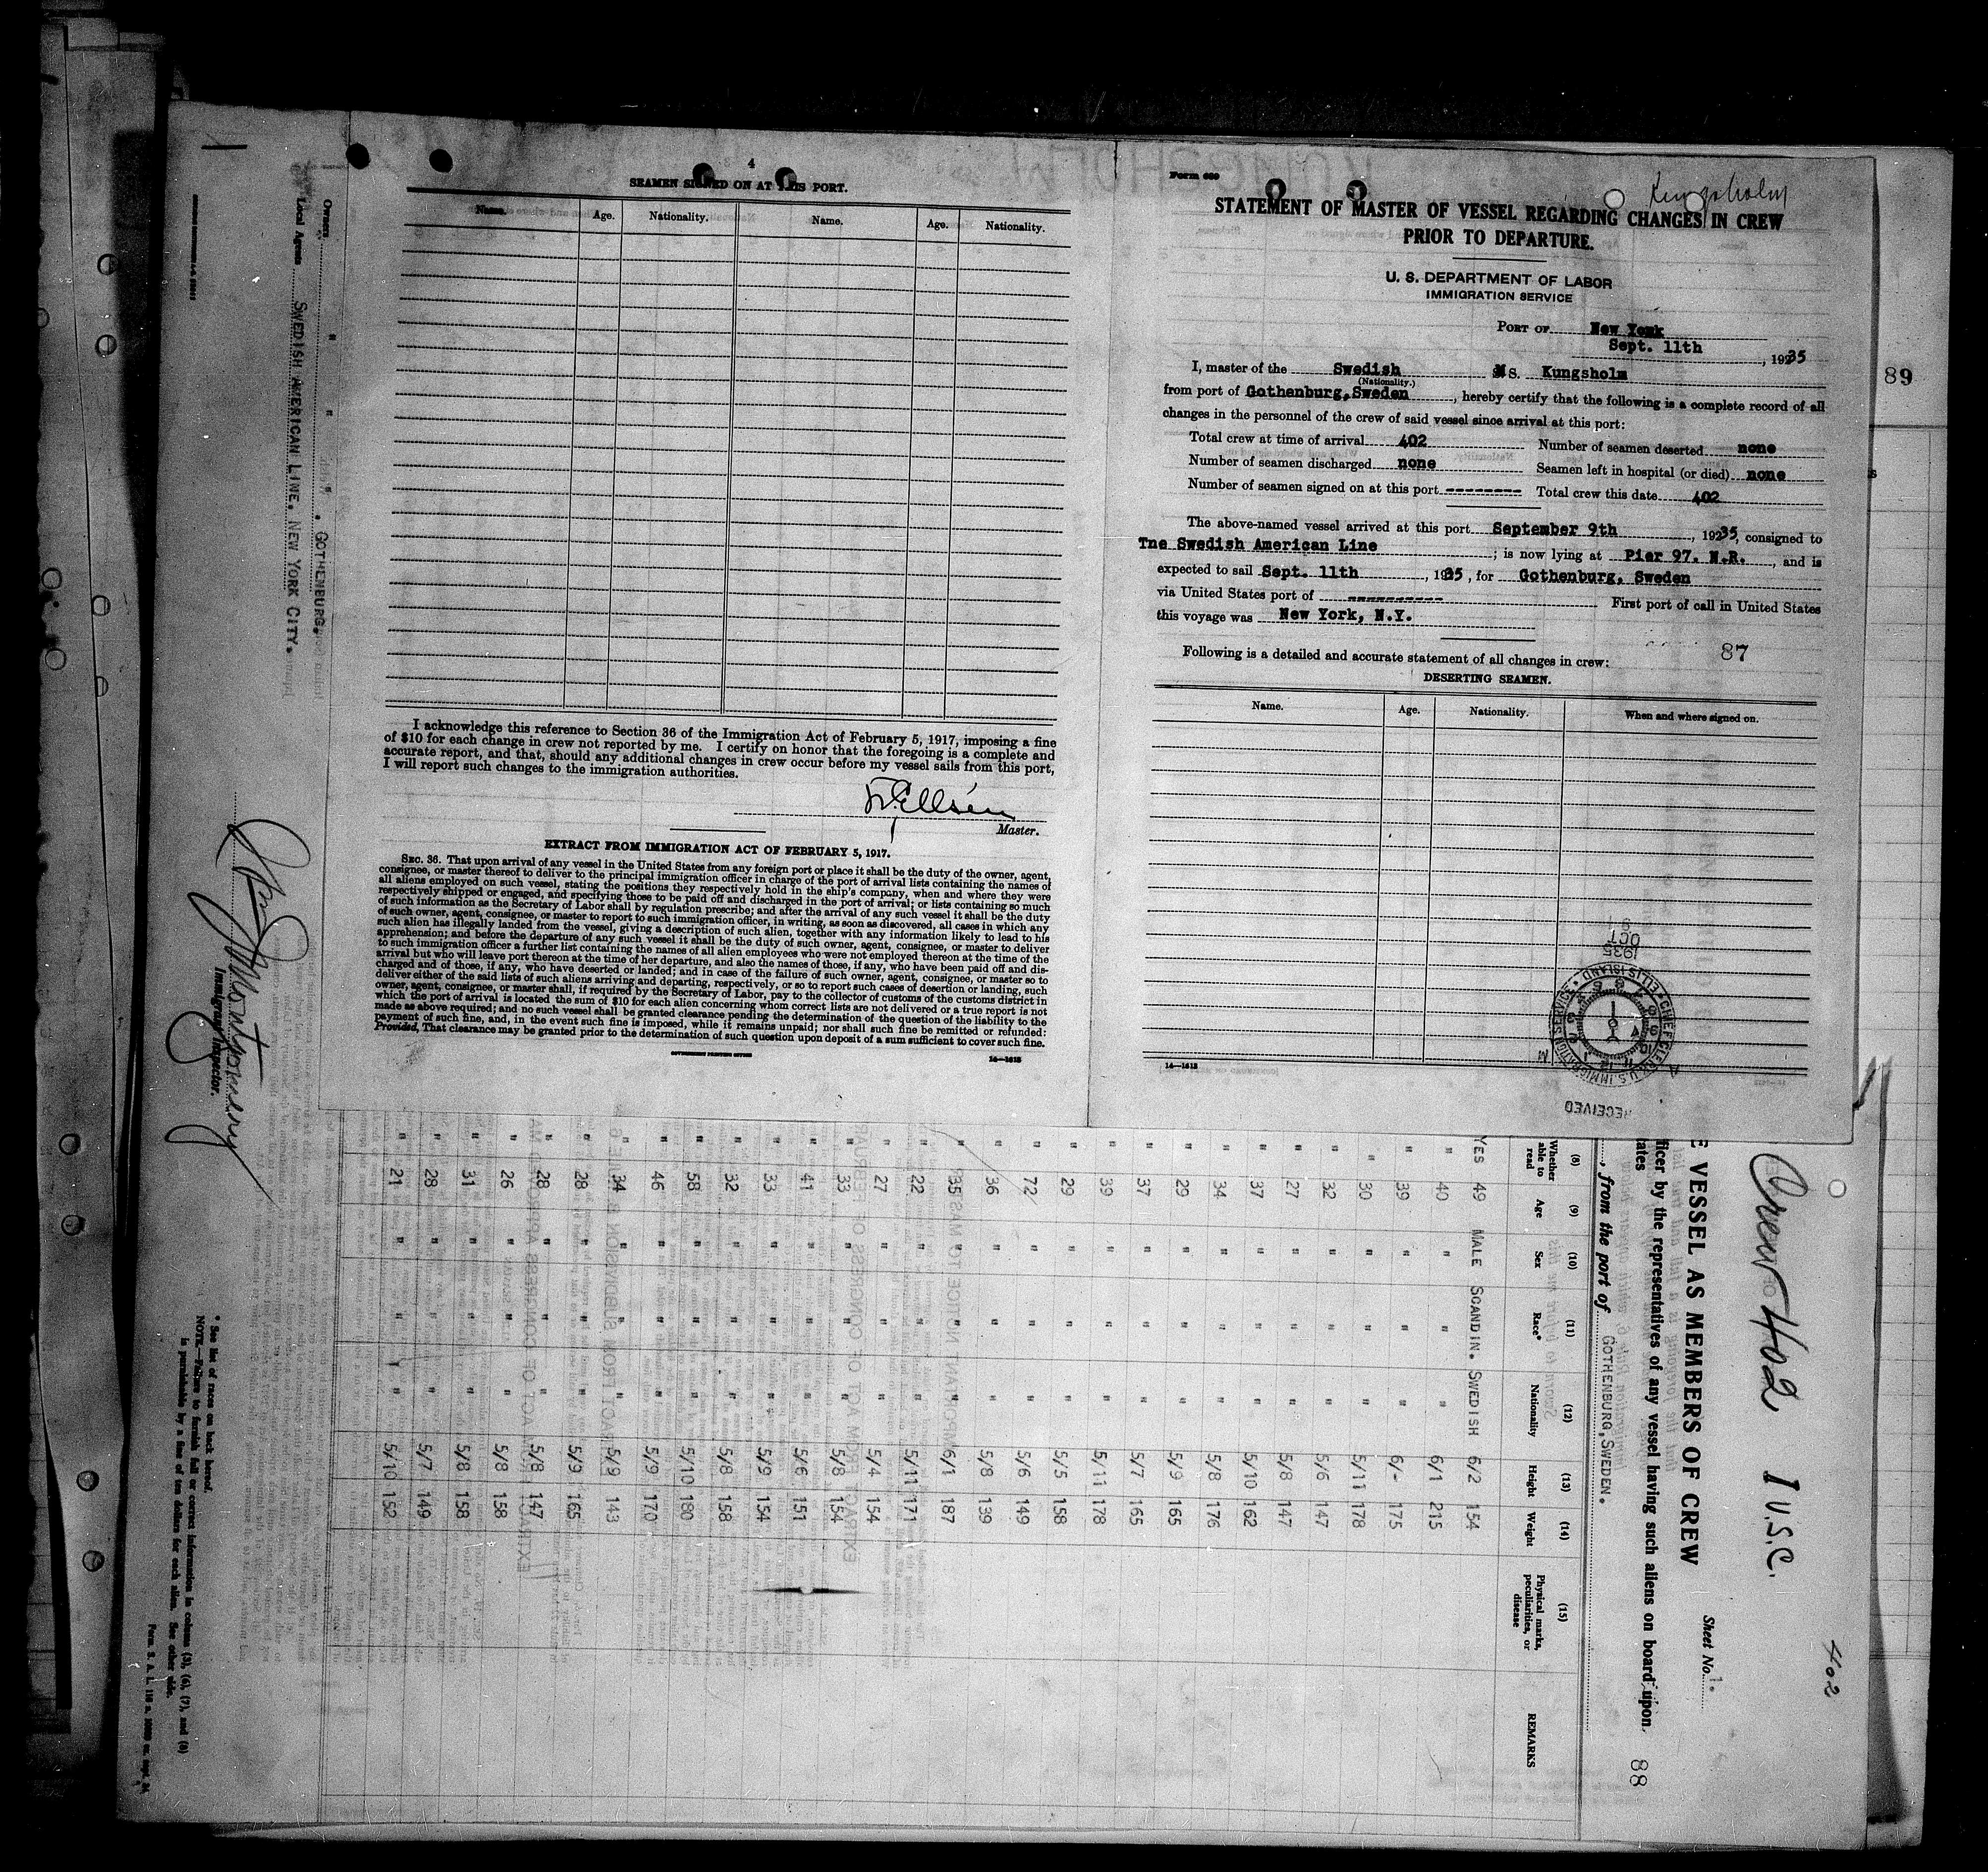 4
SEAMEN SIGNED ON AT THIS PORT.
Name. Age. Nationality. Name. Age. Nationality.
I acknowledge this reference to Section 36 of the Immigration Act of February 5, 1917, imposing a fine
of $10 for each change in crew not reported by me. I certify on honor that the foregoing is a complete and
accurate report, and that, should any additional changes in crew occur before my vessel sails from this port,
I will report such changes to the immigration authorities.
Master.
EXTRACT FROM IMMIGRATION ACT OF FEBRUARY 5, 1917.
SEC. 36. That upon arrival of any vessel in the United States from any foreign port or place it shall be the duty of the owner, agent,
consignee, or master thereof to deliver to the principal immigration officer in charge of the port of arrival lists containing the names of
all aliens employed on such vessel, stating the positions they respectively hold in the ship's company, when and where they were
respectively shipped or engaged, and specifying those to be paid off and discharged in the port of arrival; or lists containing so much
of such information as the Secretary of Labor shall by regulation prescribe; and after the arrival of any such vessel it shall be the duty
of such owner, agent, consignee, or master to report to such immigration officer, in writing, as soon as discovered, all cases in which any
such alien has illegally landed from the vessel, giving a description of such alien, together with any information likely to lead to his
apprehension; and before the departure of any such vessel it shall be the duty of such owner, agent, consignee, or master to deliver
to such immigration officer a further list containing the names of all alien employees who were not employed thereon at the time of the
arrival but who will leave port thereon at the time of her departure, and also the names of those, if any, who have been paid off and dis-
charged and of those, if any, who have deserted or landed; and in case of the failure of such owner, agent, consignee, or master so to
deliver either of the said lists of such aliens arriving and departing, respectively, or so to report such cases of desertion or landing, such
owner, agent, consignee, or master shall, if required by the Secretary of Labor, pay to the collector of customs of the customs district in
which the port of arrival is located the sum of $10 for each alien concerning whom correct lists are not delivered or a true report is not
made as above required; and no such vessel shall be granted clearance pending the determination of the question of the liability to the
payment of such fine, and, in the event such fine is imposed, while it remains unpaid; nor shall such fine be remitted or refunded:
Provided, That clearance may be granted prior to the determination of such question upon deposit of a sum sufficient to cover such fine.
GOVERNMENT PRINTING OFFICE 14—1613
Form 689
Kungsholm
STATEMENT OF MASTER OF VESSEL REGARDING CHANGES IN CREW
PRIOR TO DEPARTURE.
U. S. DEPARTMENT OF LABOR
IMMIGRATION SERVICE
PORT OF New York
Sept. 11th, 1935
I, master of the Swedish MS. Kungsholm
(Nationality.)
from port of Gothenburg, Sweden, hereby certify that the following is a complete record of all
changes in the personnel of the crew of said vessel since arrival at this port:
Total crew at time of arrival 402 Number of seamen deserted none
Number of seamen discharged none Seamen left in hospital (or died) none
Number of seamen signed on at this port -------- Total crew this date 402
The above-named vessel arrived at this port September 9th, 1935, consigned to
Tne Swedish American Line; is now lying at Pier 97. N.R., and is
expected to sail Sept. 11th, 1935, for Gothenburg, Sweden
via United States port of ---------- First port of call in United States
this voyage was New York, N.Y.
87
Following is a detailed and accurate statement of all changes in crew:
DESERTING SEAMEN.
Name. Age. Nationality. When and where signed on.
14—1613
RECEIVED
CHIEF CLERK U.S. IMMIGRATION SERVICE ELLIS ISLAND
1935 OCT
89
Crew 402 1 U.S.C.
402
E VESSEL AS MEMBERS OF CREW
Sheet No. 1.
ficer by the representatives of any vessel having such aliens on board upon
ates
88
, from the port of GOTHENBURG, SWEDEN.
(8) (9) (10) (11) (12) (13) (14) (15)
Whether able to read Age Sex Race* Nationality Height Weight Physical marks, peculiarities, or disease REMARKS
YES 49 MALE SCANDIN. SWEDISH 6/2 154
" 40 " " " 6/1 215
" 39 " " " 6/- 175
" 30 " " " 5/11 178
" 32 " " " 5/6 147
" 27 " " " 5/8 147
" 37 " " " 5/10 162
" 34 " " " 5/8 176
" 29 " " " 5/9 165
" 37 " " " 5/7 165
" 39 " " " 5/11 178
" 29 " " " 5/5 158
" 72 " " " 5/6 149
" 36 " " " 5/8 139
" 35 " " " 6/1 187
" 22 " " " 5/11 171
" 27 " " " 5/4 154
" 33 " " " 5/8 154
" 41 " " " 5/6 151
" 33 " " " 5/9 154
" 32 " " " 5/8 158
" 58 " " " 5/10 180
" 46 " " " 5/9 170
" 34 " " " 5/9 143
" 28 " " " 5/9 165
" 28 " " " 5/8 147
" 26 " " " 5/8 158
" 31 " " " 5/8 158
" 28 " " " 5/7 149
" 21 " " " 5/10 152
Owners " " " . GOTHENBURG.
Local Agents SWEDISH AMERICAN LINE. NEW YORK CITY.
Montgomery
Immigrant Inspector.
* See list of races on back hereof.
NOTE.—Failure to furnish full or correct information in columns (3), (6), (7), and (8)
is punishable by a fine of ten dollars for each alien. See other side.